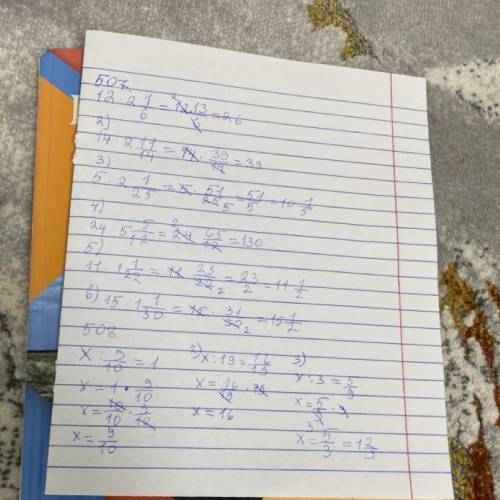 507.
12 · 2 1/6 = 12 · 13/6 = 26
2)
14 · 2 11/14 = 14 · 39/14 = 39
3)
5 · 2 1/25 = 5 · 51/25 5 = 51/5 = 10 1/5
4)
24 · 5 5/12 = 2 24 · 65/12 = 130
5)
11 · 1 1/22 = 11 · 23/22 2 = 23/2 = 11 1/2
6) 15 · 1 1/30 = 15 · 31/30 2 = 15 1/2
508.
x : 9/10 = 1
x = 1 · 9/10
x = 10/10 · 9/10
x = 9/10
2) x : 19 = 16/19
x = 16/19 · 19
x = 16
3)
x : 3 = 5/9
x = 5/9 · 3
3
x = 5/3 = 1 2/3